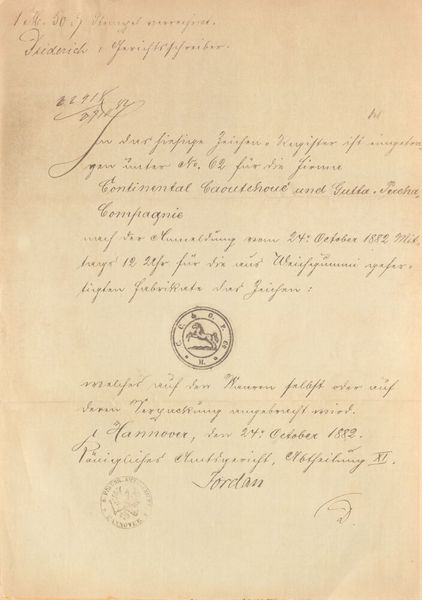 1 M. 50 ₰ Stempel verrechnet.
Diederich, Gerichtsschreiber.
In das hiesige Zeichen-Register ist eingetra-
gen unter No. 62 für die Firma
Continental Caoutchouc und Gutta-Percha
Compagnie
nach der Anmeldung vom 24. October 1882 Mit-
tags 12 Uhr für die aus Weichgummi gefer-
tigten Fabrikate das Zeichen:
C. C. & G. P. Co
H.
welches auf den Waaren selbst oder auf
deren Verpackung angebracht wird.
Hannover, den 24. October 1882.
Königliches Amtsgericht, Abtheilung XI.
Jordan
HANNOVER